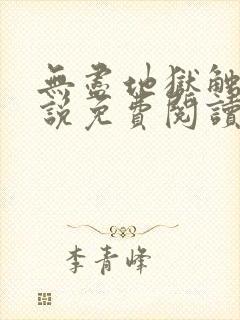 無盡地獄觸
說免費閱讀
李青峰